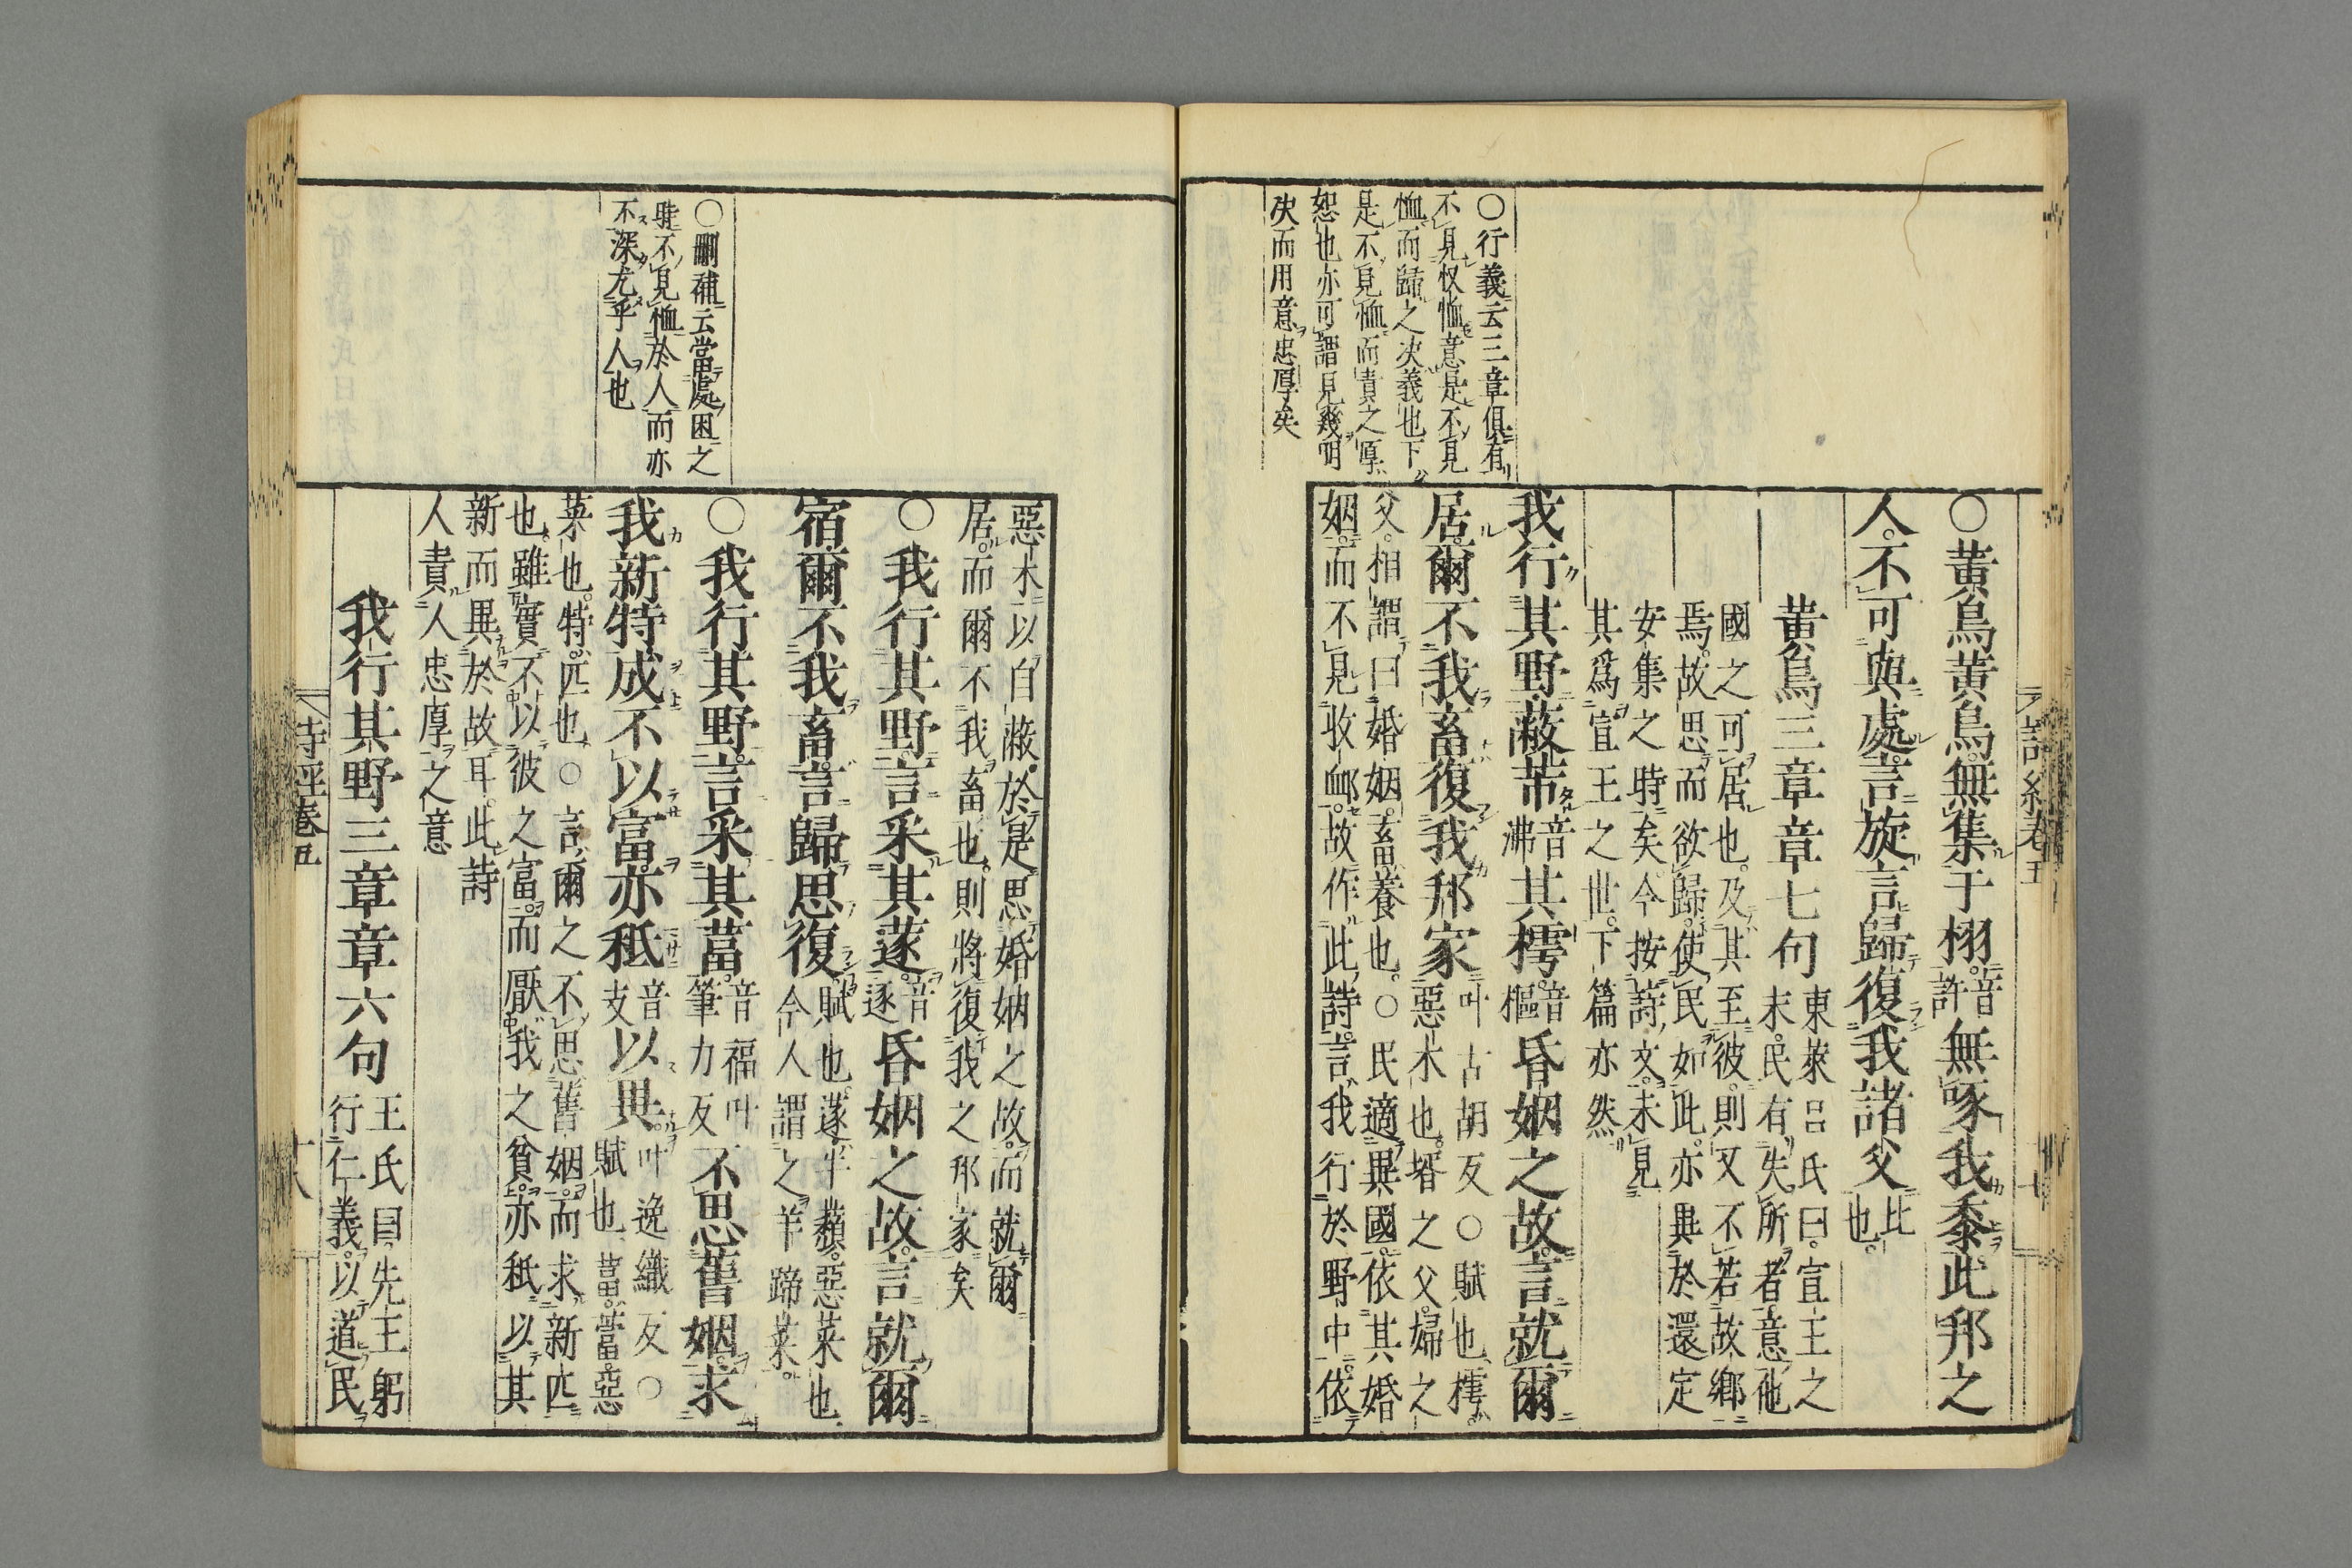 ○行義云三章俱有
不見収恤意是不見
恤而歸之決義也下
是不見恤而責之厚
恕也亦可謂見幾明
决而用意忠厚矣
○黃鳥黃鳥無集于栩音許無啄我黍此邦之
人不可與處言旋言歸復我諸父比也
黃鳥三章章七句東萊呂氏曰宣王之
末民有失所者意他
國之可居也及其至彼則又不若故鄉
焉故思而欲歸使民如此亦異於還定
安集之時矣今按詩文未見
其爲宣王之世下篇亦然
我行其野蔽芾音沸其樗音樞昏姻之故言就爾
居爾不我畜復我邦家叶古胡反○賦也樗
惡木也壻之父婦之
父相謂曰婚姻畜養也○民適異國依其婚
姻而不見收䘏故作此詩言我行於野中依
詩經卷五
○刪補云當處困之
時不見恤於人而亦
不深尤乎人也
惡木以自蔽於是思婚姻之故而就爾
居而爾不我畜也則將復我之邦家矣
○我行其野言采其蓫音逐昏姻之故言就爾
宿爾不我畜言歸思復賦也蓫牛蘈惡菜也
今人謂之羊蹄菜
○我行其野言采其葍音福叶筆力反不思舊姻求
我新特成不以富亦秖音支以異叶逸織反○
賦也葍䔰惡
菜也特匹也○言爾之不思舊姻而求新匹
也雖實不以彼之富而厭我之貧亦秖以其
新而異於故耳此詩
人責人忠厚之意
我行其野三章章六句王氏曰先王躬
行仁義以道民
詩經卷五
十八